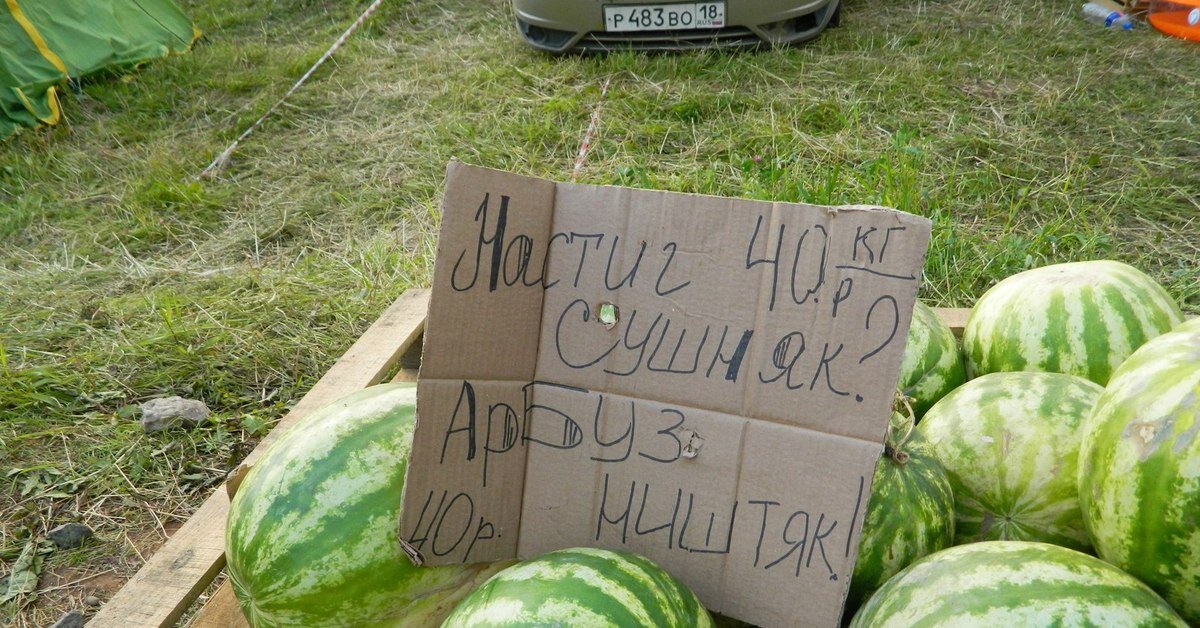 Р 483 ВО 18 RUS
Настиг 40р. кг/р
Сушняк?
Арбуз
40р. ништяк!